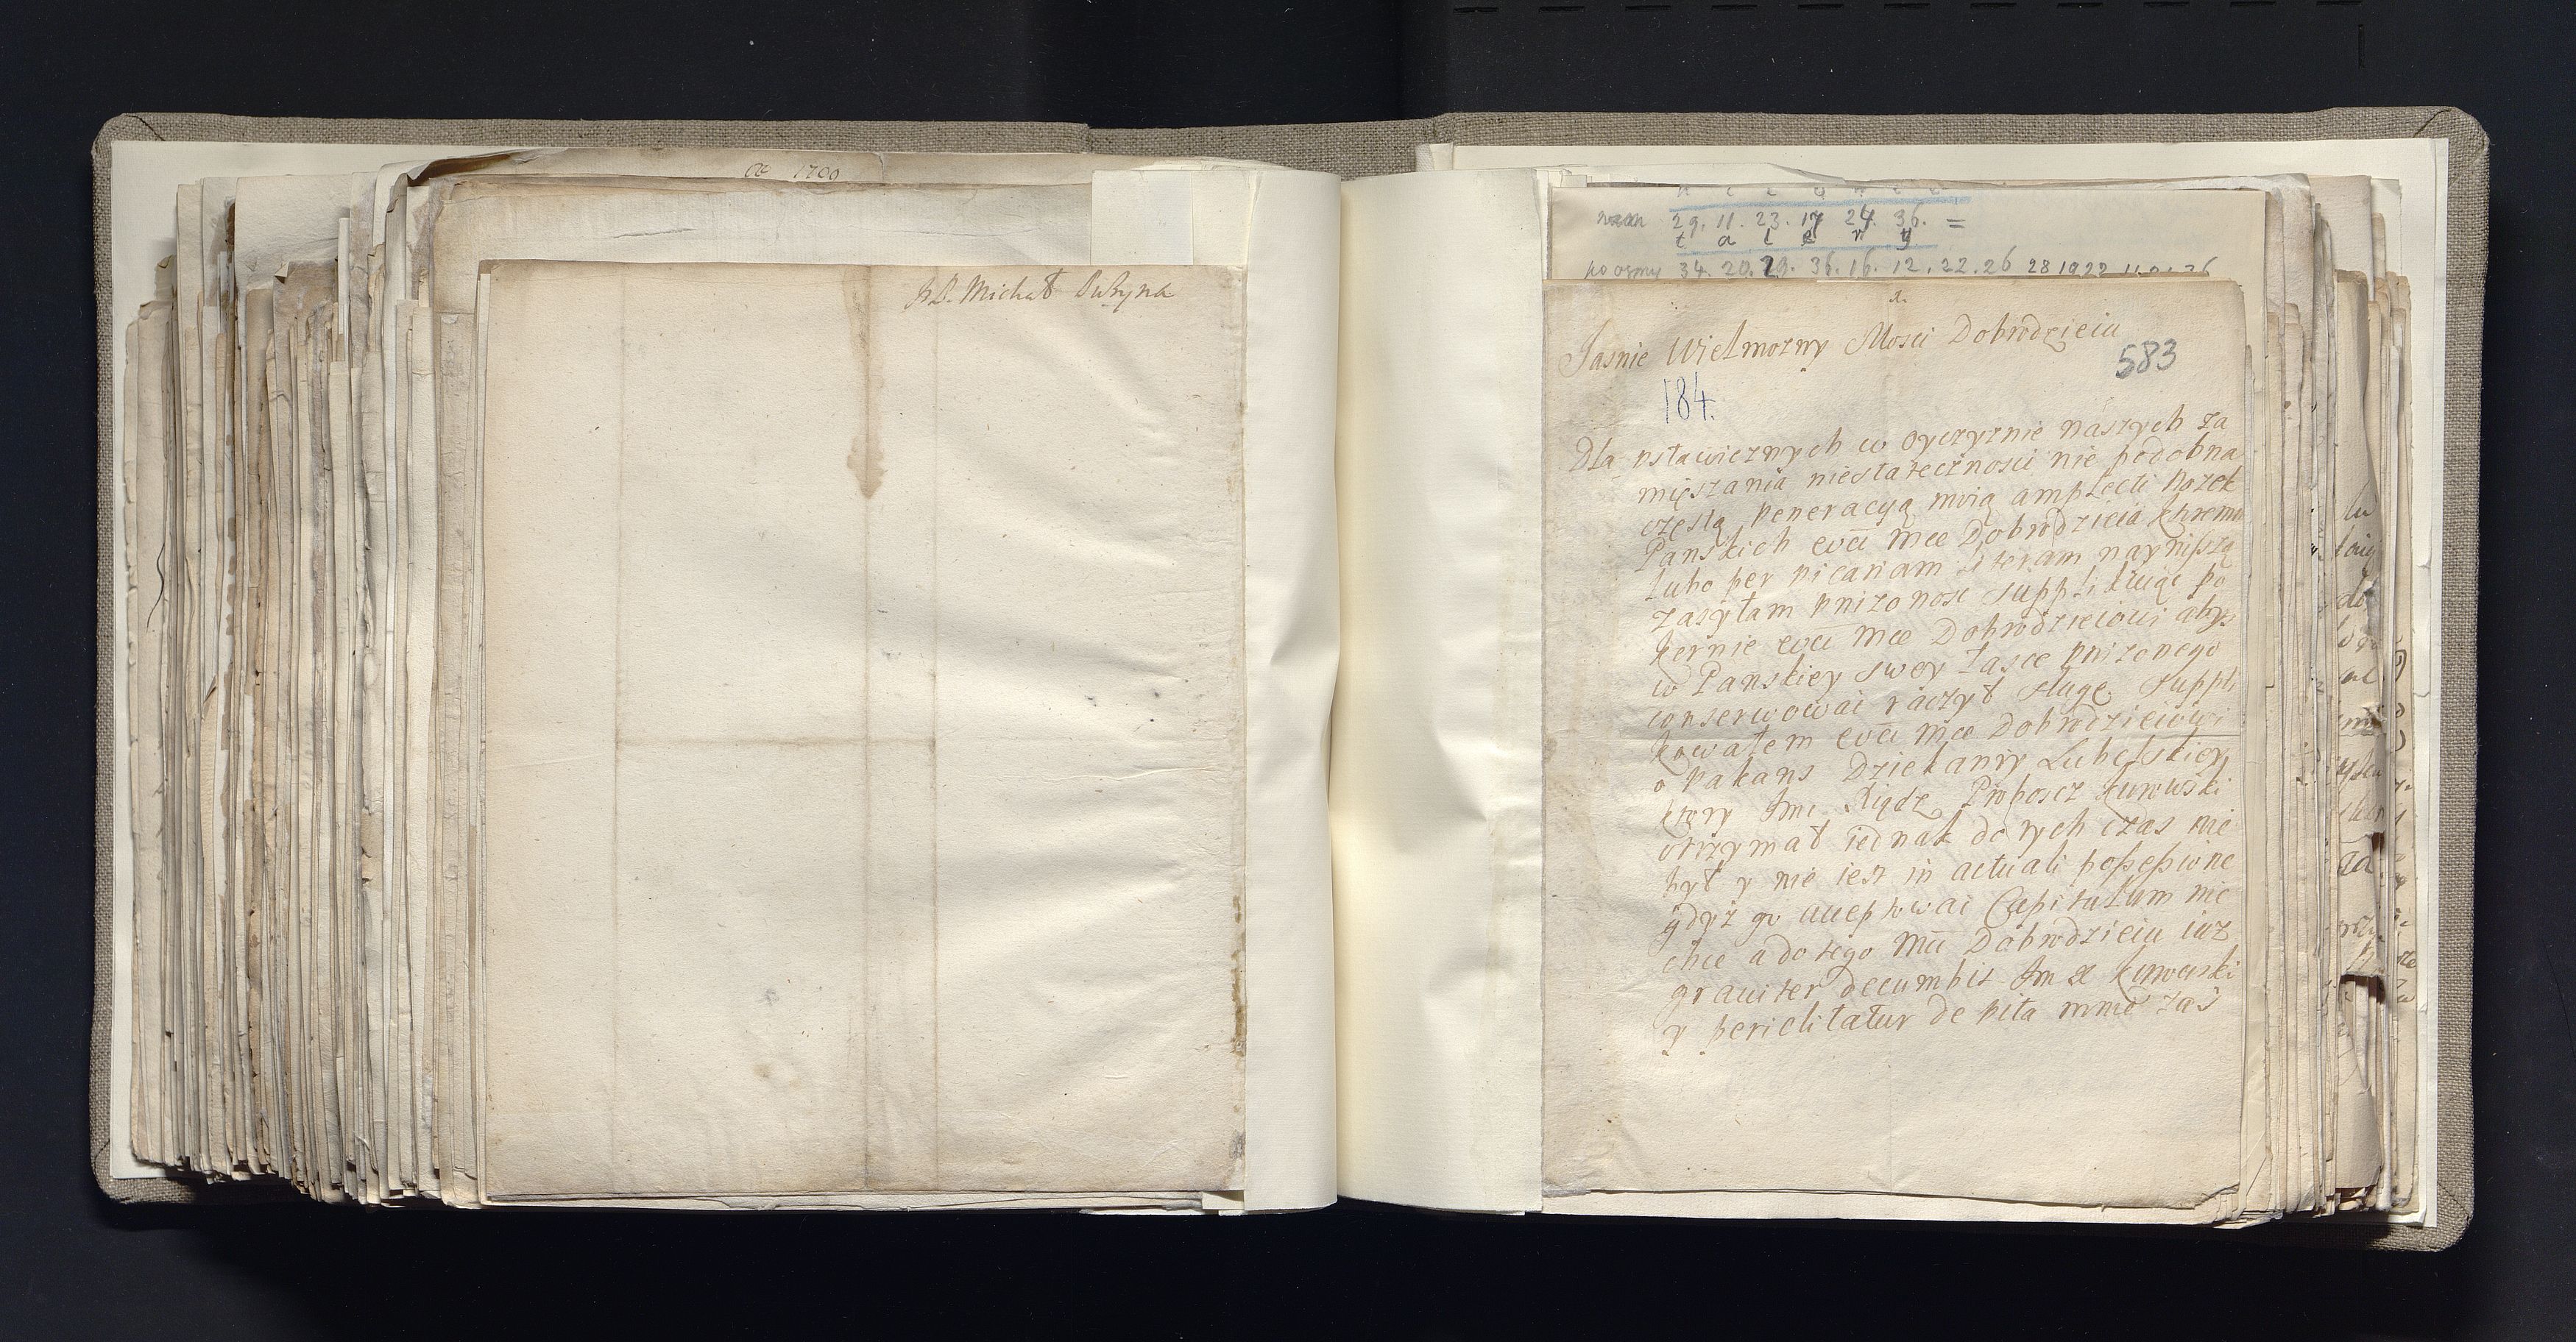 1700
P. Michał Puzyna
29. 11. 23. 17 24. 36. =
t a l e r y
34. 20. 29. 36. 16. 12. 22. 26 28 19 22
Jasnie Wielmozny Mosci Dobrodzieiu
583
184.
Dla ustawicznych w oyczyznie naszych za
mięszania niestateczności nie podobna
częstą veneracyą moią amplecti nozek
Panskich wci Mce Dobrodzieia ktoremu
lubo per vicariam literam nayniszą
zasyłam unizonosc supplikuiąc po
kornie wci Mce Dobrodzieiowi abys
w Panskiey swey łasce unizonego
conserwowac raczył sługę. Suppli
kowałem wci Mce Dobrodzieiowi
o vakans Dziekaniy Lubelskiey
ktory Jmc Xiądz Proboscz Kurowski
otrzymał iednak do tych czas nie
był y nie iest in actuali possessione
gdyz go acceptowac Capitulum nie
chce a do tego Mci Dobrodzieiu iuz
grauiter decumbit Jm X Kurowski
y periclitatur de vita mnie zas